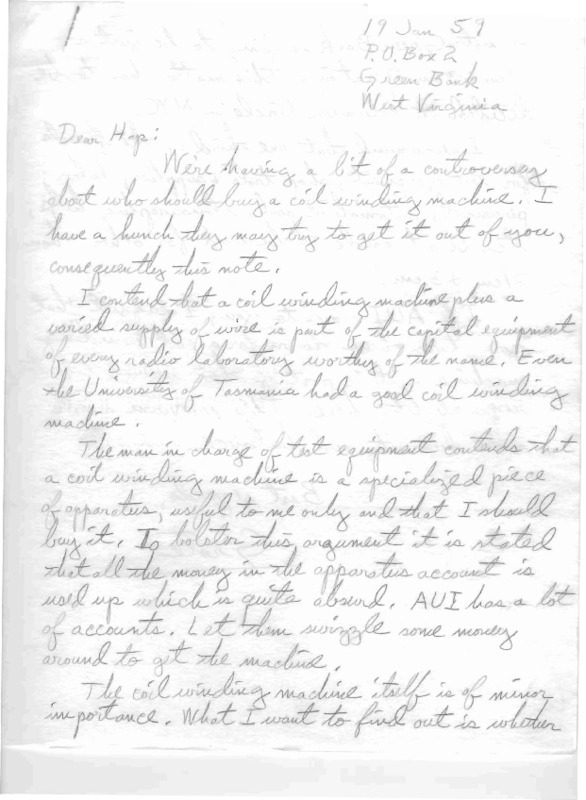 19 Jan 59
P.O. Box 2
Green Bank
West Virginia
Dear Hap:
We're having a bit of a controversy
about who should buy a coil winding machine. I
have a hunch they may try to get it out of you,
consequently this note.
I contend that a coil winding machine plus a
varied supply of wire is part of the capital equipment
of every radio laboratory worthy of the name. Even
the University of Tasmania had a good coil winding
machine.
The man in charge of test equipment contends that
a coil winding machine is a specialized piece
of apparatus, useful to me only and that I should
buy it. To bolster this argument it is stated
that all the money in the apparatus account is
used up which is quite absurd. AUI has a lot
of accounts. Let them swizzle some money
around to get the machine.
The coil winding machine itself is of minor
importance. What I want to find out is whether